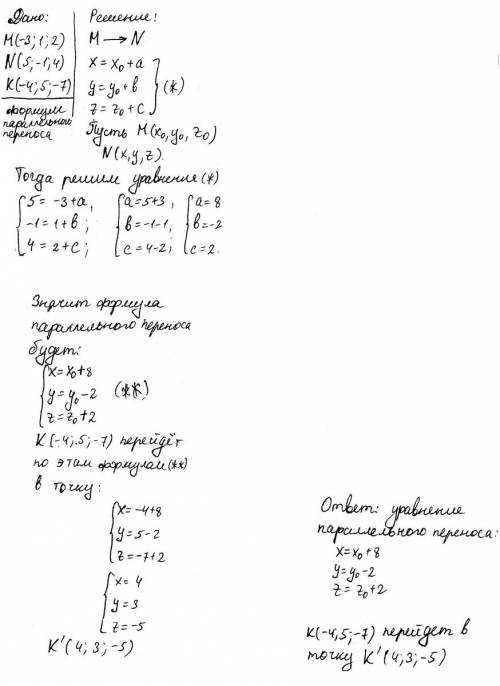 Дано:
M(-3; 1; 2)
N(5; -1; 4)
K(-4; 5; -7)
формулы
параллельного
переноса
Решение:
M → N
x = x₀ + a
y = y₀ + b (*)
z = z₀ + c
Пусть M(x₀, y₀, z₀)
N(x, y, z).
Тогда решим уравнения (*)
5 = -3 + a, a = 5+3, a = 8
-1 = 1 + b; b = -1-1, b = -2
4 = 2 + c; c = 4-2; c = 2.
Значит формула
параллельного переноса
будет:
x = x₀ + 8
y = y₀ - 2 (**)
z = z₀ + 2
K(-4; 5; -7) перейдёт
по этим формулам (**)
в точку:
x = -4+8
y = 5-2
z = -7+2
x = 4
y = 3
z = -5
K'(4; 3; -5)
Ответ: уравнение
параллельного переноса:
x = x₀ + 8
y = y₀ - 2
z = z₀ + 2
K(-4, 5; -7) перейдет в
точку K'(4; 3; -5)